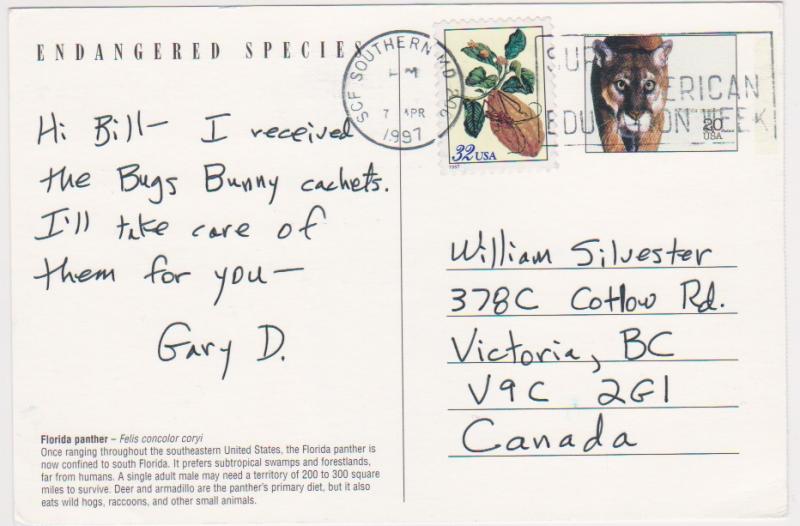 ENDANGERED SPECIES
SCF SOUTHERN MD 20
PM
7 APR
1997
32 USA
1997
20
USA
ERICAN
EDU ION WEEK
Hi Bill- I received
the Bugs Bunny cachets.
I'll take care of
them for you-
Gary D.
William Silvester
378C Cotlow Rd.
Victoria, BC
V9C 2G1
Canada
Florida panther – Felis concolor coryi
Once ranging throughout the southeastern United States, the Florida panther is
now confined to south Florida. It prefers subtropical swamps and forestlands,
far from humans. A single adult male may need a territory of 200 to 300 square
miles to survive. Deer and armadillo are the panther's primary diet, but it also
eats wild hogs, raccoons, and other small animals.